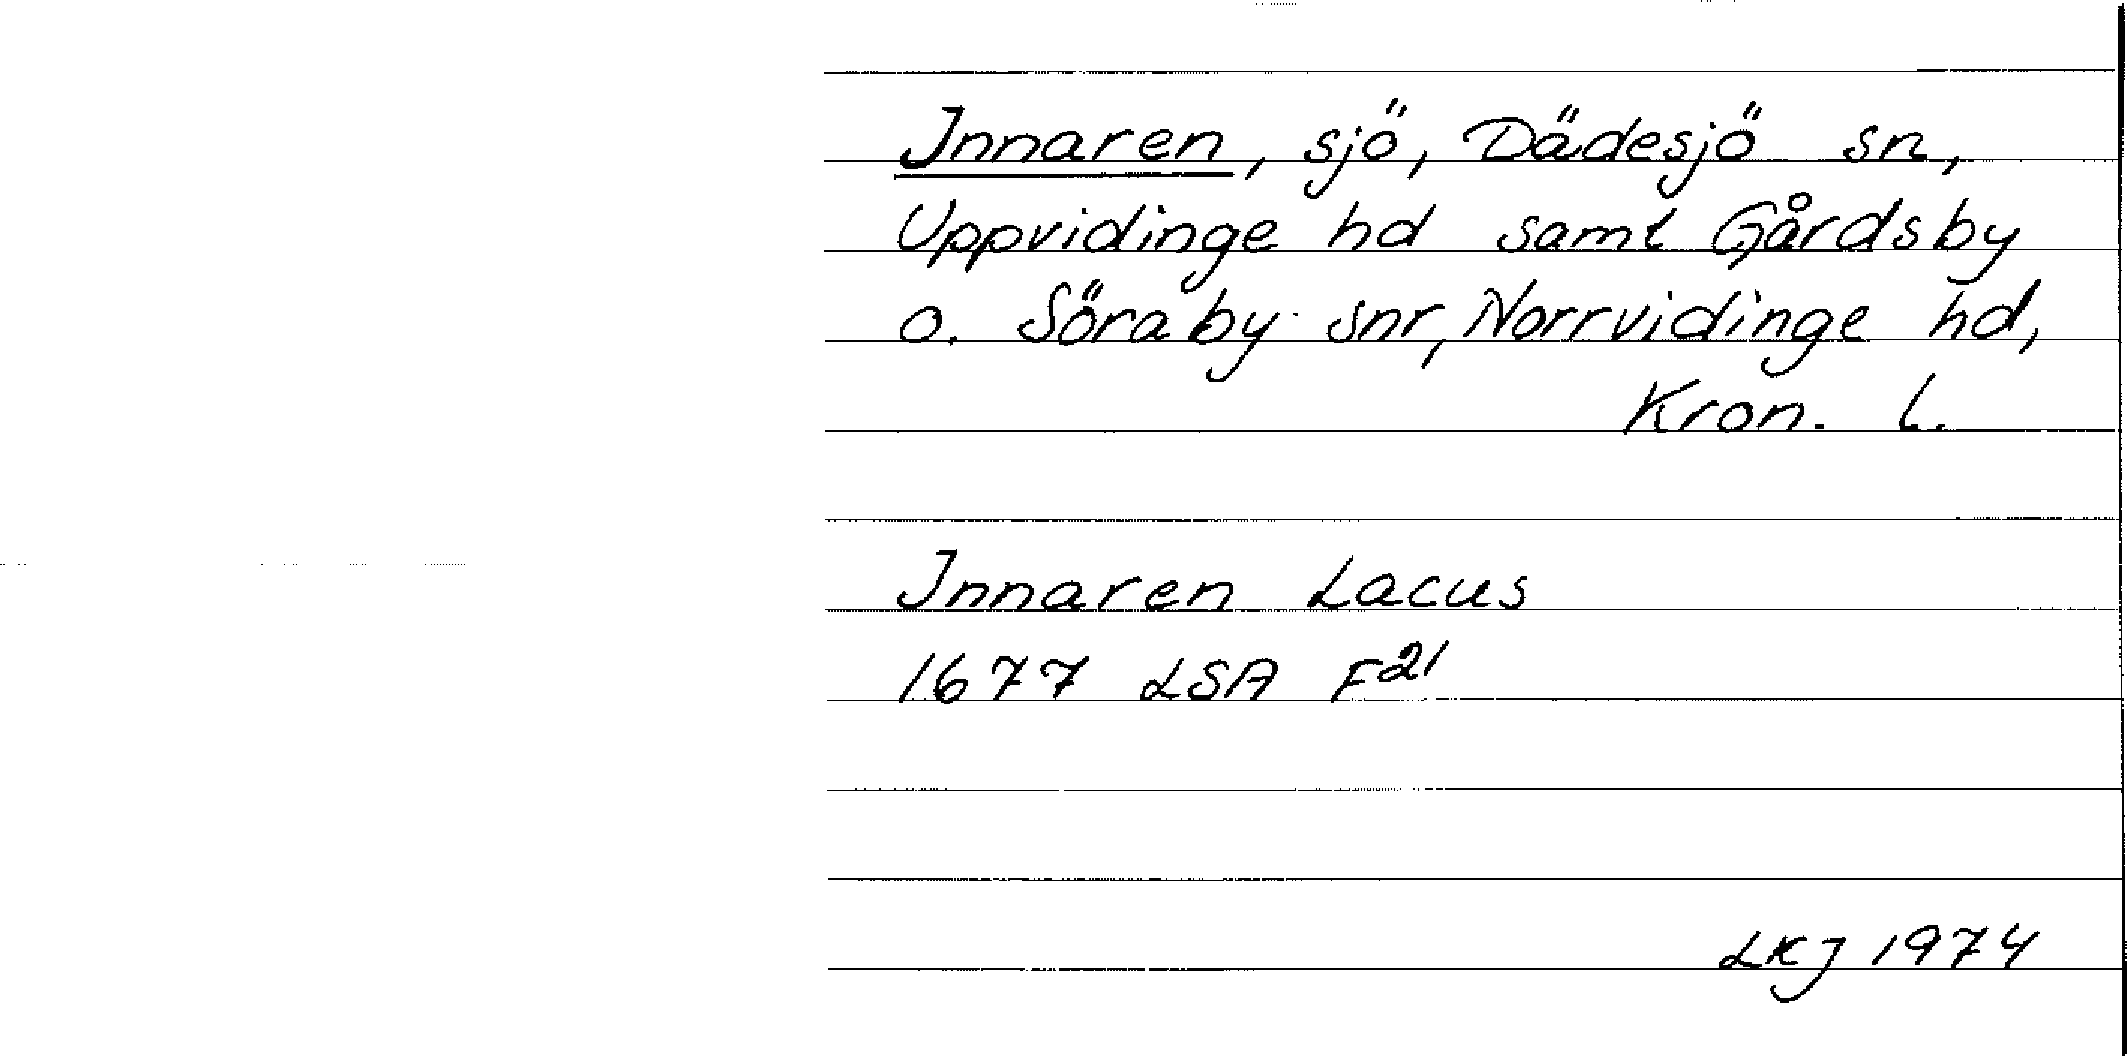 Innaren, sjö, Dädesjö sn,
Uppvidinge hd samt Gårdsby
o. Söraby snr, Norrvidinge hd,
Kron. l.
Innaren Lacus
1677 LSA F21
LKJ 1974